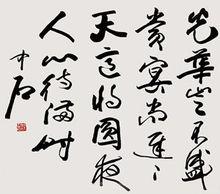 光華豈不盛
賞宴尚遲〻
天意将圓夜
人心待滿時
中石